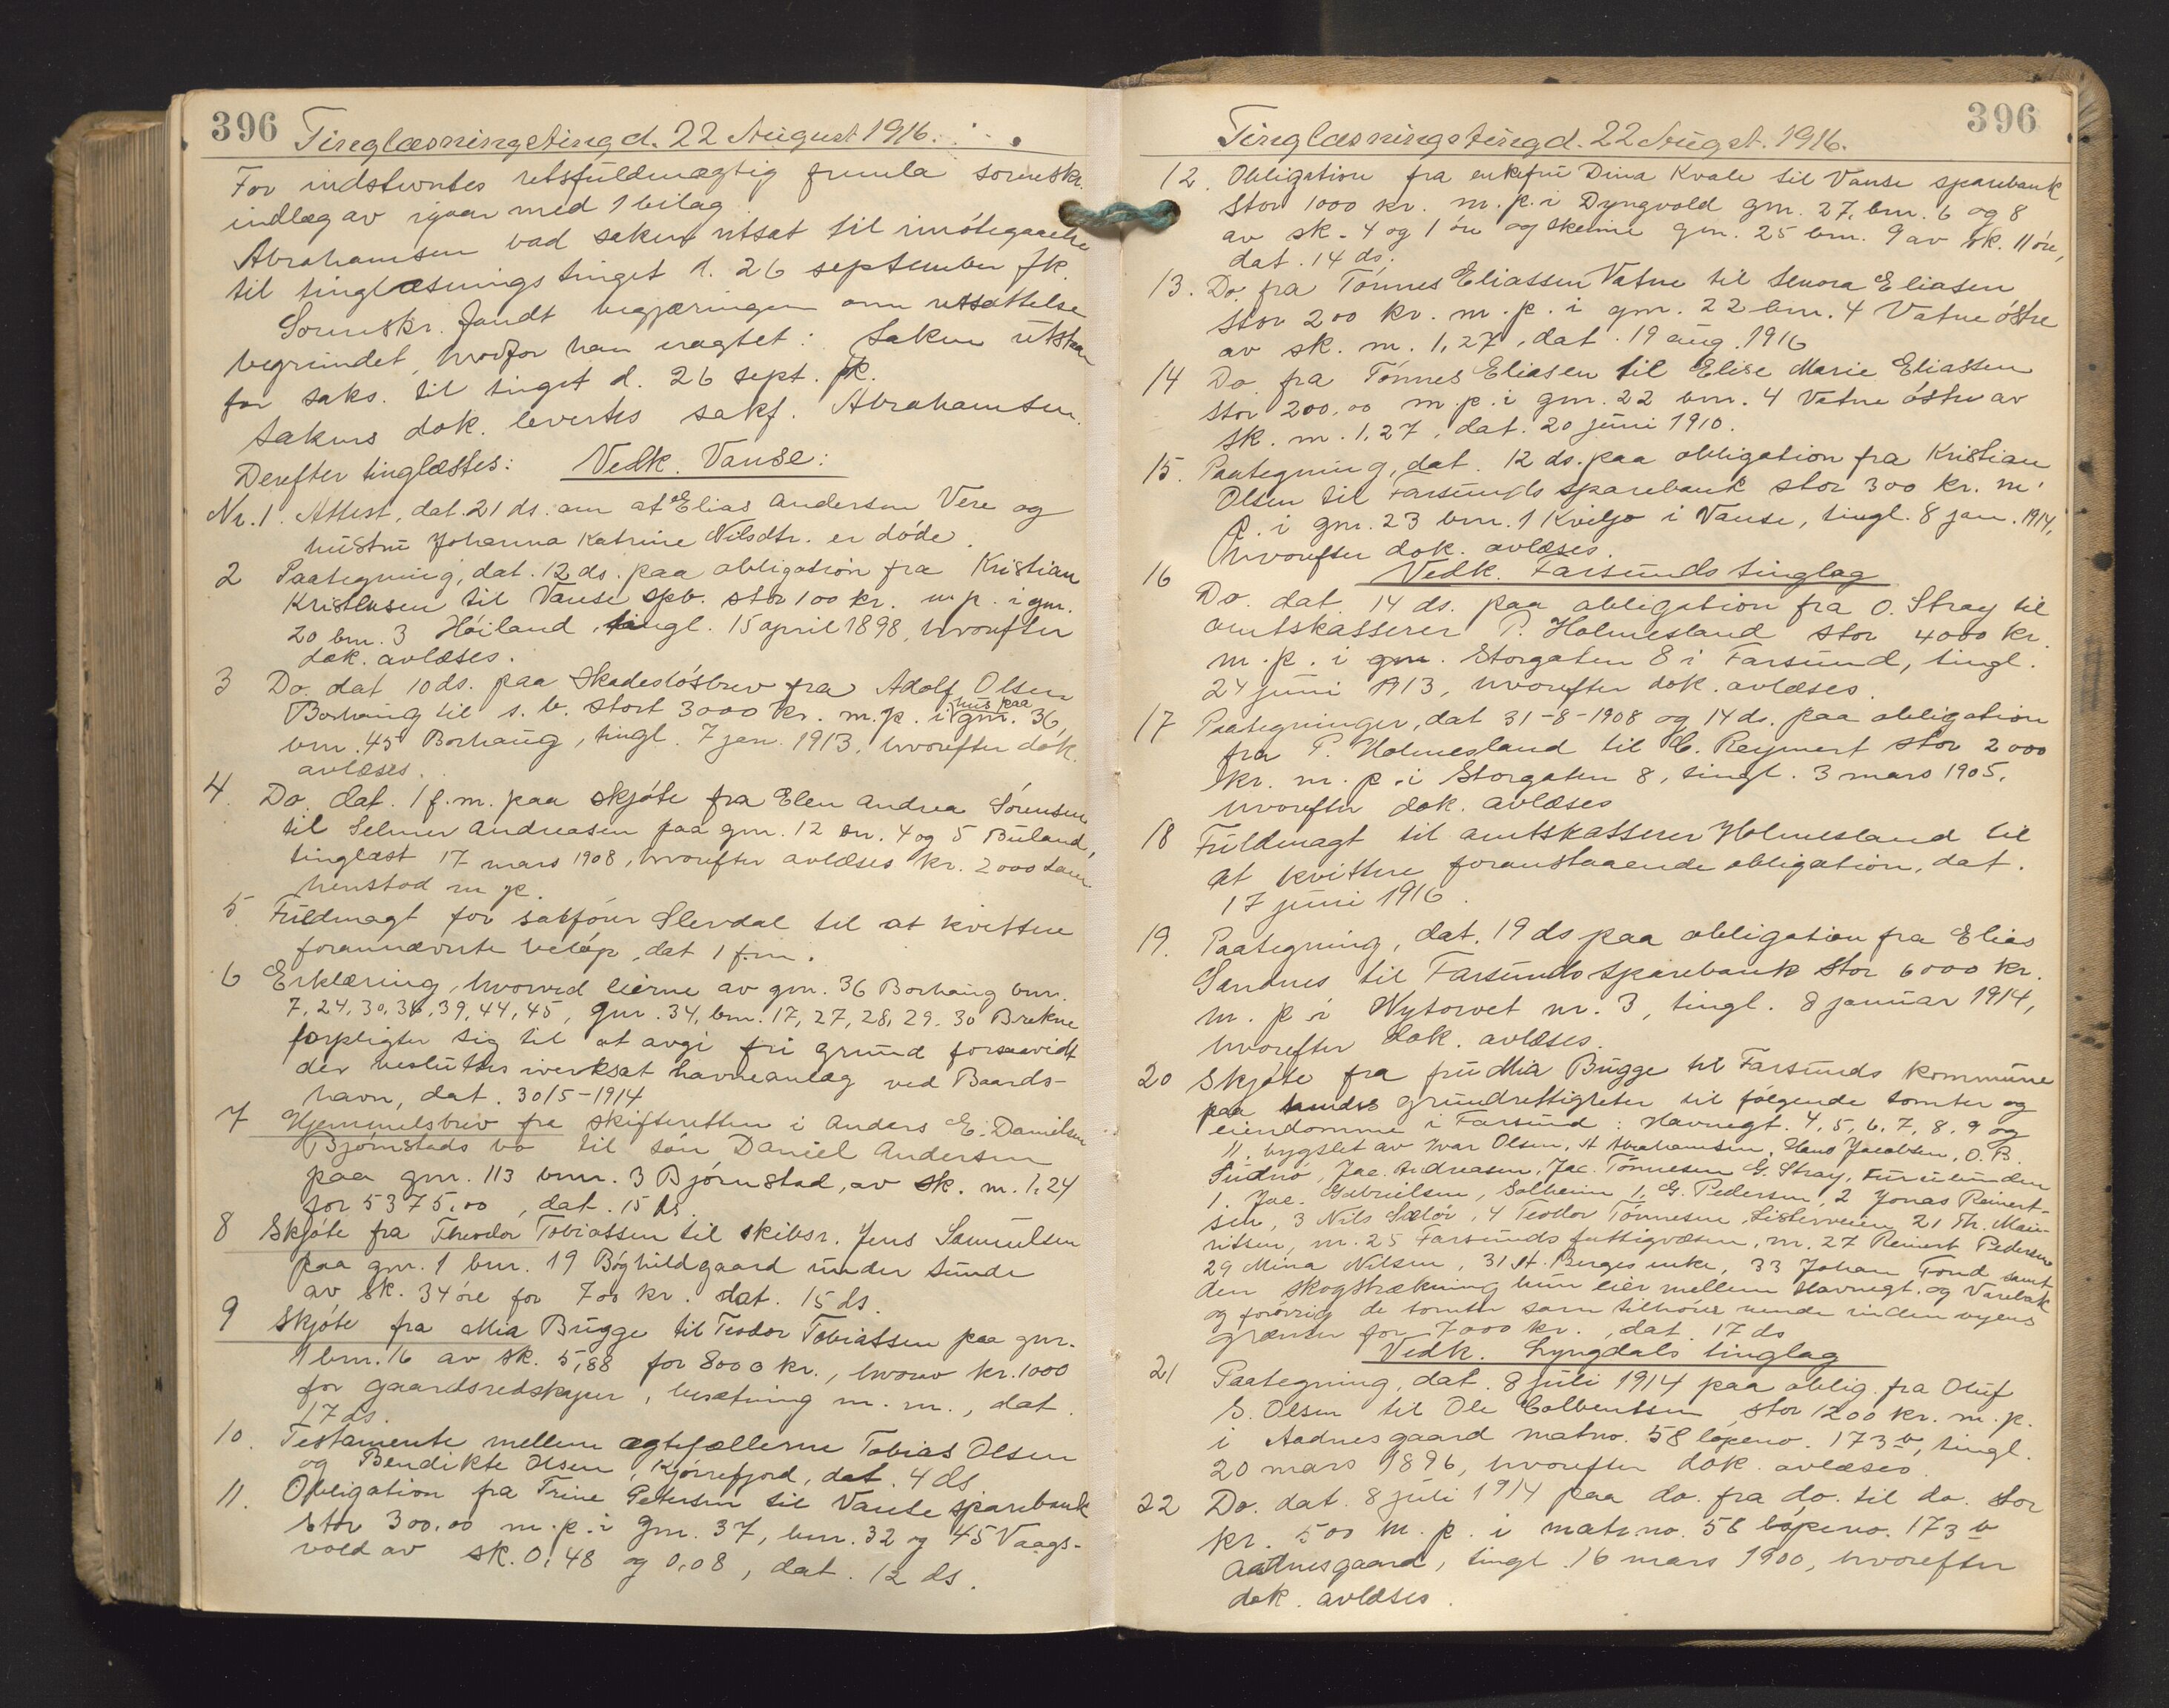 396 Tinglæsningsting d. 22 August 1916.
For indstevntes retsfuldmægtig fremla sorenskr.
indlæg av igaar med 1 bilag.
Abrahamsen bad saken utsat til imøtegaaelse
til tinglæsningstinget d. 26 september fk.
Sorenskr. fandt begjæringen om utsættelse
begrundet, hvorfor han eragtet: Saken utstaar
for saks. til tinget d. 26 sept. fk.
Sakens dok. levertes sakf. Abrahamsen.
Derefter tinglæstes: Vedk. Vanse:
Nr. 1. Attest, dat. 21 ds. om at Elias Anderson Vere og
hustru Johanna Katrine Nilsdtr. er døde.
2 Paategning, dat. 12 ds. paa obligation fra Kristian
Kristensen til Vanse spb. stor 100 kr. m. p. i gnr.
20 bnr. 3 Høiland, tingl. 15 april 1898, hvorefter
dok. avlæses.
3 Do. dat 10 ds. paa Skadesløsbrev fra Adolf Olsen
Borhaug til s. b. stort 3000 kr. m. p. i hus paa gnr. 36,
bnr. 45 Borhaug, tingl. 7 jan. 1913, hvorefter dok.
avlæses.
4. Do. dat. 1 f.m. paa skjøte fra Elen Andrea Sørensen
til Selmer Andreasen paa gnr. 12 bnr. 4 og 5 Buland,
tinglæst 17 mars 1908, hvorefter avlæses kr. 2000 som
henstod m p.
5 Fuldmagt for sakfører Slevdal til at kvittere
forannævnte beløp, dat 1 f.m.
6 Erklæring, hvorved eierne av gnr. 36 Borhaug bnr.
7, 24, 30, 36, 39, 44, 45, gnr. 34, bnr. 17, 27, 28, 29. 30 Brekne
forpligter sig til at avgi fri grund forsaavidt
der besluttes iverksat havneanlæg ved Baards-
havn, dat. 30/5-1914
7 Hjemmelsbrev fra skifteretten i Anders E. Danielsen
Bjørnstads bo til søn Daniel Andersen
paa gnr. 113 bnr. 3 Bjørnstad, av sk. m. 1,24
for 5375,00, dat. 15 ds.
8 Skjøte fra Theodor Tobiassen til skibsr. Jens Samuelsen
paa gnr. 1 bnr. 19 Bøghildgaard under Sunde
av sk. 34 øre for 700 kr. dat. 15 ds.
9 Skjøte fra Mia Bugge til Teodor Tobiassen paa gnr.
1 bnr. 16 av sk. 5,88 for 8000 kr., hvorav kr. 1000
for gaardsredskaper, besætning m. m., dat.
17 ds.
10. Testamente mellem ægtefællerne Tobias Olsen
og Bendikte Olsen, Kjørrefjord, dat. 4 ds
11. Obligation fra Trine Petersen til Vanse sparebank
stor 300,00 m. p. i gnr. 37, bnr. 32 og 45 Vaags-
vold av sk. 0,48 og 0,08, dat. 12 ds.
Tinglæsningsting d. 22 August. 1916. 396
12. Obligation fra enkefru Dina Kvale til Vanse sparebank
stor 1000 kr. m. p. i Dyngvold gnr. 27, bnr. 6 og 8
av sk. 4 og 1 øre og Skeime gnr. 25 bnr. 9 av sk. 11 øre,
dat. 14 ds.
13. Do. fra Tønnes Eliassen Vatne til Senora Eliasen
stor 200 kr. m. p. i gnr. 22 bnr. 4 Vatne østre
av sk. m. 1,27, dat. 19 aug. 1916
14 Do fra Tønnes Eliasen til Elise Marie Eliassen
stor 200,00 m. p. i gnr. 22 bnr. 4 Vatne østre av
sk. m. 1,27, dat. 20 juni 1910.
15. Paategning, dat. 12 ds. paa obligation fra Kristian
Olsen til Farsunds sparebank stor 300 kr. m.
p. i gnr. 23 bnr. 1 Kviljo i Vanse, tingl. 8 jan. 1914,
hvorefter dok. avlæses.
Vedk. Farsunds tinglag
16 Do. dat. 14 ds. paa obligation fra O. Stray til
amtskasserer P. Holmesland stor 4000 kr.
m. p. i gnr. Storgaten 8 i Farsund, tingl.
24 juni 1913, hvorefter dok. avlæses.
17 Paategninger, dat 31-8-1908 og 14 ds. paa obligation
fra P. Holmesland til C. Reymert stor 2000
kr. m. p. i Storgaten 8, tingl. 3 mars 1905.
hvorefter dok. avlæses
18 Fuldmagt til amtskasserer Holmesland til
at kvittere foranstaaende obligation, dat.
17 juni 1916.
19. Paategning, dat. 19 ds paa obligation fra Elias
Sandnes til Farsunds sparebank stor 6000 kr.
m. p. i Nytorvet nr. 3, tingl. 8 januar 1914,
hvorefter dok. avlæses.
20 Skjøte fra fru Mia Bugge til Farsunds kommune
paa grundrettigheter til følgende tomter og
eiendomme i Farsund: Havnegt. 4, 5, 6, 7, 8, 9 og
11, bygslet av Ivar Olsen, A Abrahamsen, Hans Jacobsen, O. B.
Jac. Andreasen, Jac. Tønnesen G. Stray,
1. Jac. Gabrielsen, Solheim 1, G. Pedersen, 2 Jonas Reinert-
sen, 3 Nils 4 Teodor Tønnesen, Listerveien 21 Th. Mau-
ritsen, nr. 25 Farsunds fattigvæsen, nr. 27 Reinert Pedersen
29 Mina Nilsen, 31 A. Berges enke, 33 Johan Fond samt
den skogstrækning hun eier mellem Havnegt. og Varebak
og forøvrig de tomter som tilhører hende inden byens
grænser for 7000 kr., dat. 17 ds
Vedk. Lyngdals tinglag
21 Paategning, dat. 8 juli 1914 paa oblig. fra Oluf
S. Olsen til Ole Colbentsen, stor 1200 kr. m. p.
i Aadnesgaard matno. 58 løpeno. 173 b, tingl.
20 mars 1896, hvorefter dok. avlæses.
22 Do. dat. 8 juli 1914 paa do. fra do. til do. stor
kr. 500 m. p. i matr. no. 58 løpeno. 173 b
Aadnesgaard, tingl. 16 mars 1900, hvorefter
dok. avlæses.